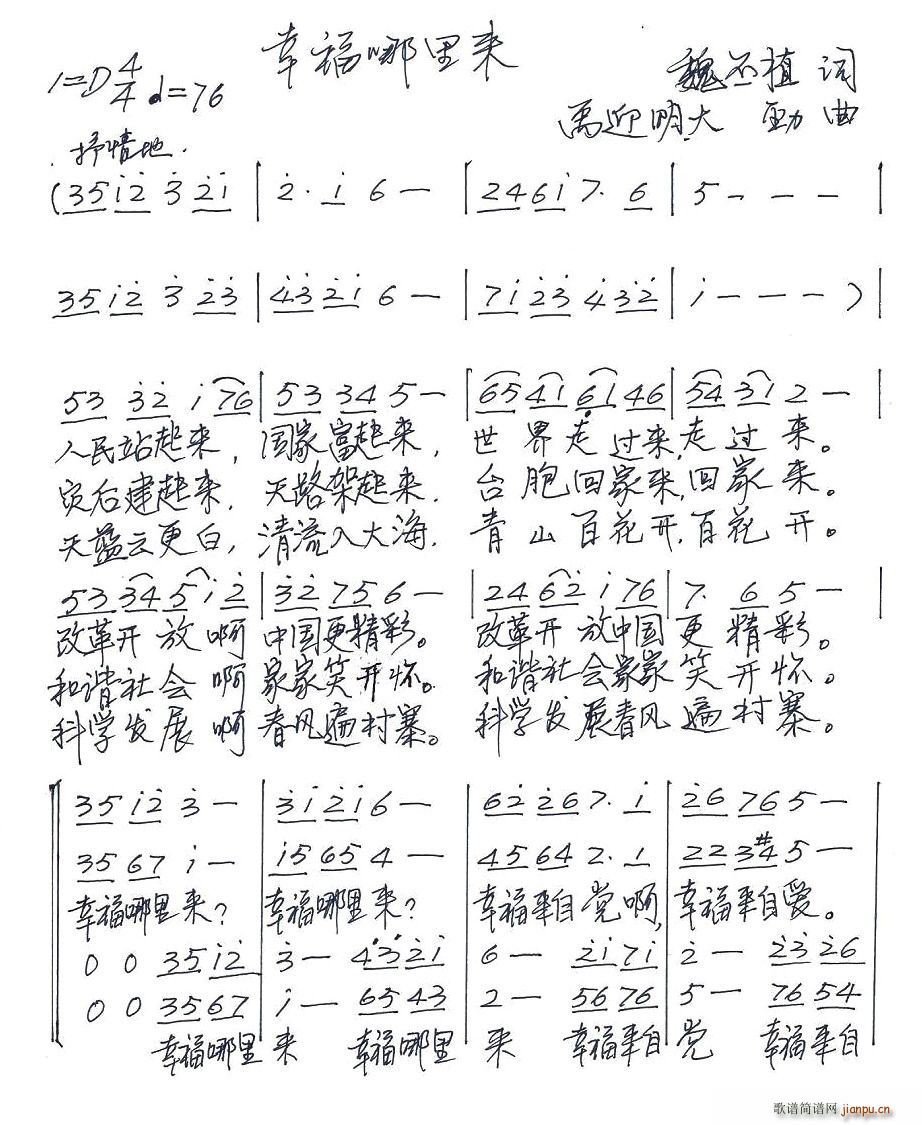 幸福哪里来
1=D 4/4 ♩=76
魏丕植 词
禹迎明.大 勐 曲
抒情地.
(35 i̇2̇ 3̇ 2̇i̇ | 2̇. i̇ 6 — | 246i̇ 7. 6 | 5 — — — |
35 i̇2̇ 3̇ 2̇3̇ | 4̇3̇ 2̇i̇ 6 — | 7i̇ 2̇3̇ 4̇ 3̇2̇ | i̇ — — — ) |
53 3̇2̇ i̇ 76 | 53 34 5 — | 65 41 61 46 | 54 31 2 — |
人民站起来, 国家富起来, 世界走过来,走过来。
灾后建起来, 天路架起来, 台胞回家来,回家来。
天蓝云更白, 清流入大海, 青山百花开,百花开。
53 34 5 i̇ 2̇ | 3̇2̇ 75 6 — | 24 62̇ i̇ 76 | 7. 6 5 — |
改革开放啊 中国更精彩。 改革开放中国更精彩。
和谐社会啊 家家笑开怀。 和谐社会家家笑开怀。
科学发展啊 春风遍村寨。 科学发展春风遍村寨。
35 i̇2̇ 3̇ — | 3̇i̇ 2̇i̇ 6 — | 62̇ 2̇6 7. i̇ | 2̇6 76 5 — |
35 67 i̇ — | i̇5 65 4 — | 45 64 2. 1 | 22 3#4 5 — |
幸福哪里来? 幸福哪里来? 幸福来自党啊, 幸福来自爱。
0 0 35 i̇2̇ | 3̇ — 4̇3̇ 2̇i̇ | 6 — 2̇i̇ 7i̇ | 2̇ — 2̇3̇ 2̇6 |
0 0 35 67 | i̇ — 65 43 | 2 — 56 76 | 5 — 76 54 |
幸福哪里 来 幸福哪里 来 幸福来自 党 幸福来自
歌谱简谱网 jianpu.cn